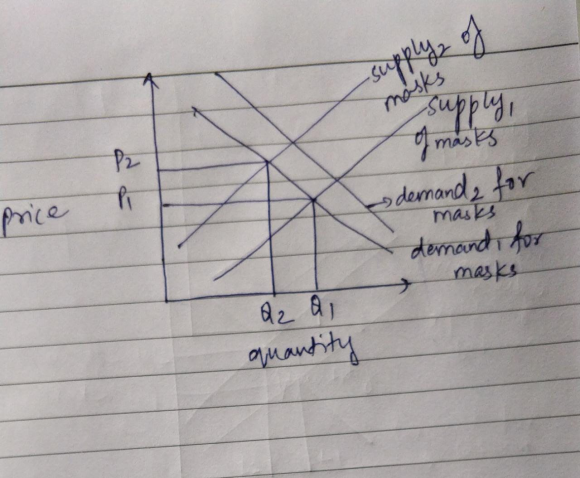 supply2 of
masks
supply1
of masks
P2
P1
price
demand2 for
masks
demand1 for
masks
Q2 Q1
quantity